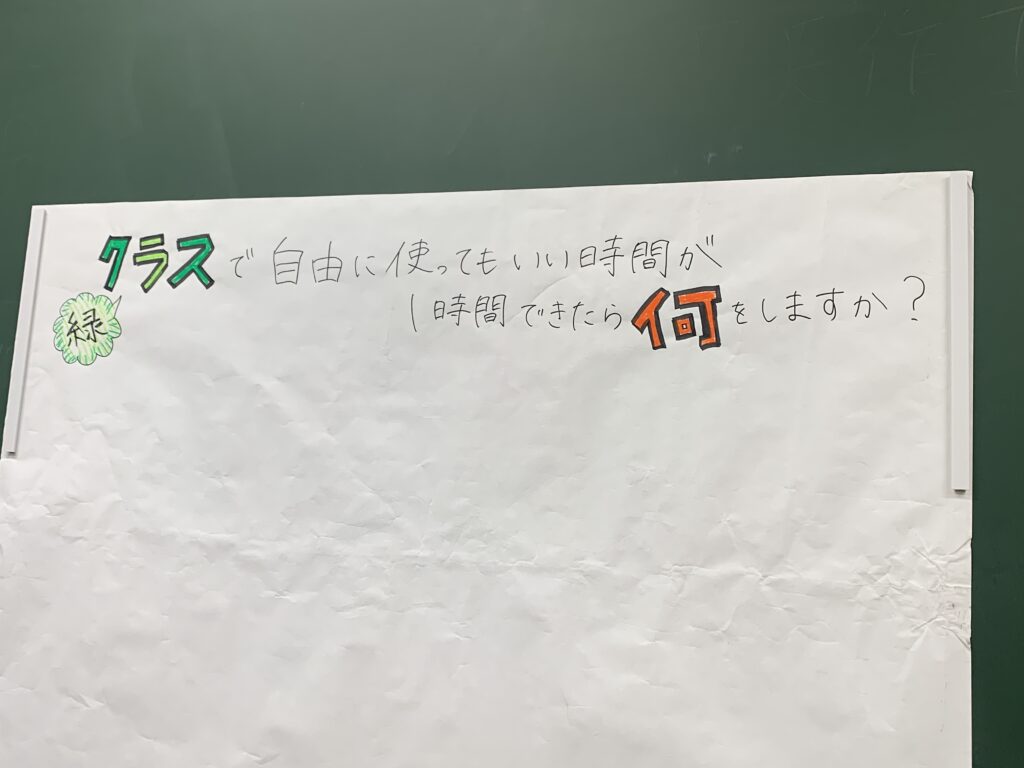 クラスで自由に使ってもいい時間が
緑
1時間できたら何をしますか?